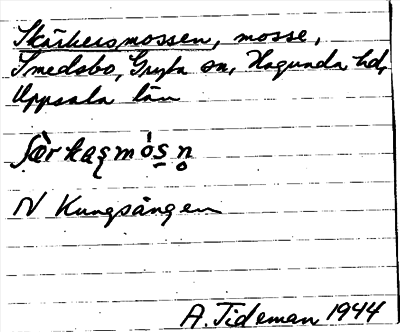 Skärkersmossen, mosse,
Smedsbo, Gryta sn, Hagunda hd,
Uppsala län
N Kungsängen
A. Tideman 1944